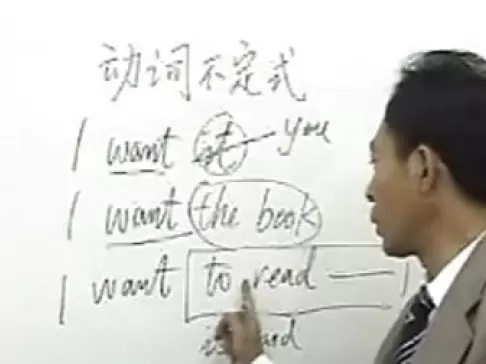 动词不定式
I want it you
I want the book
I want to read